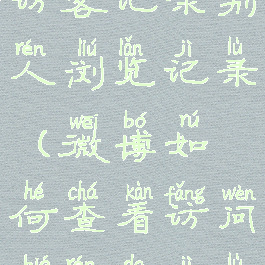 访客记录别
rén liú lǎn jì lù
人浏览记录
wēi bó rú
(微博如
hé chá kàn fǎng wèn
何查看访问
bié rén de jì lù